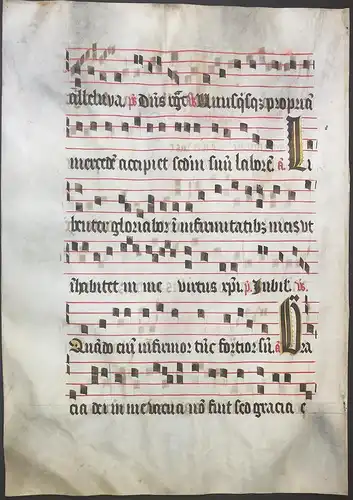 alleluya. ps Dns regt. Unusqsqz propriã
mercedẽ accipiet scdm suũ laborẽ a Li
benter gloriabor ĩ infirmitatibz meis ut
ĩhabitet in me virtus xpi. p Jubil. vs
Quãdo eni infirmor tũc fortior sũ. a Gra
cia dei in me vacua nõ fuit sed gracia e